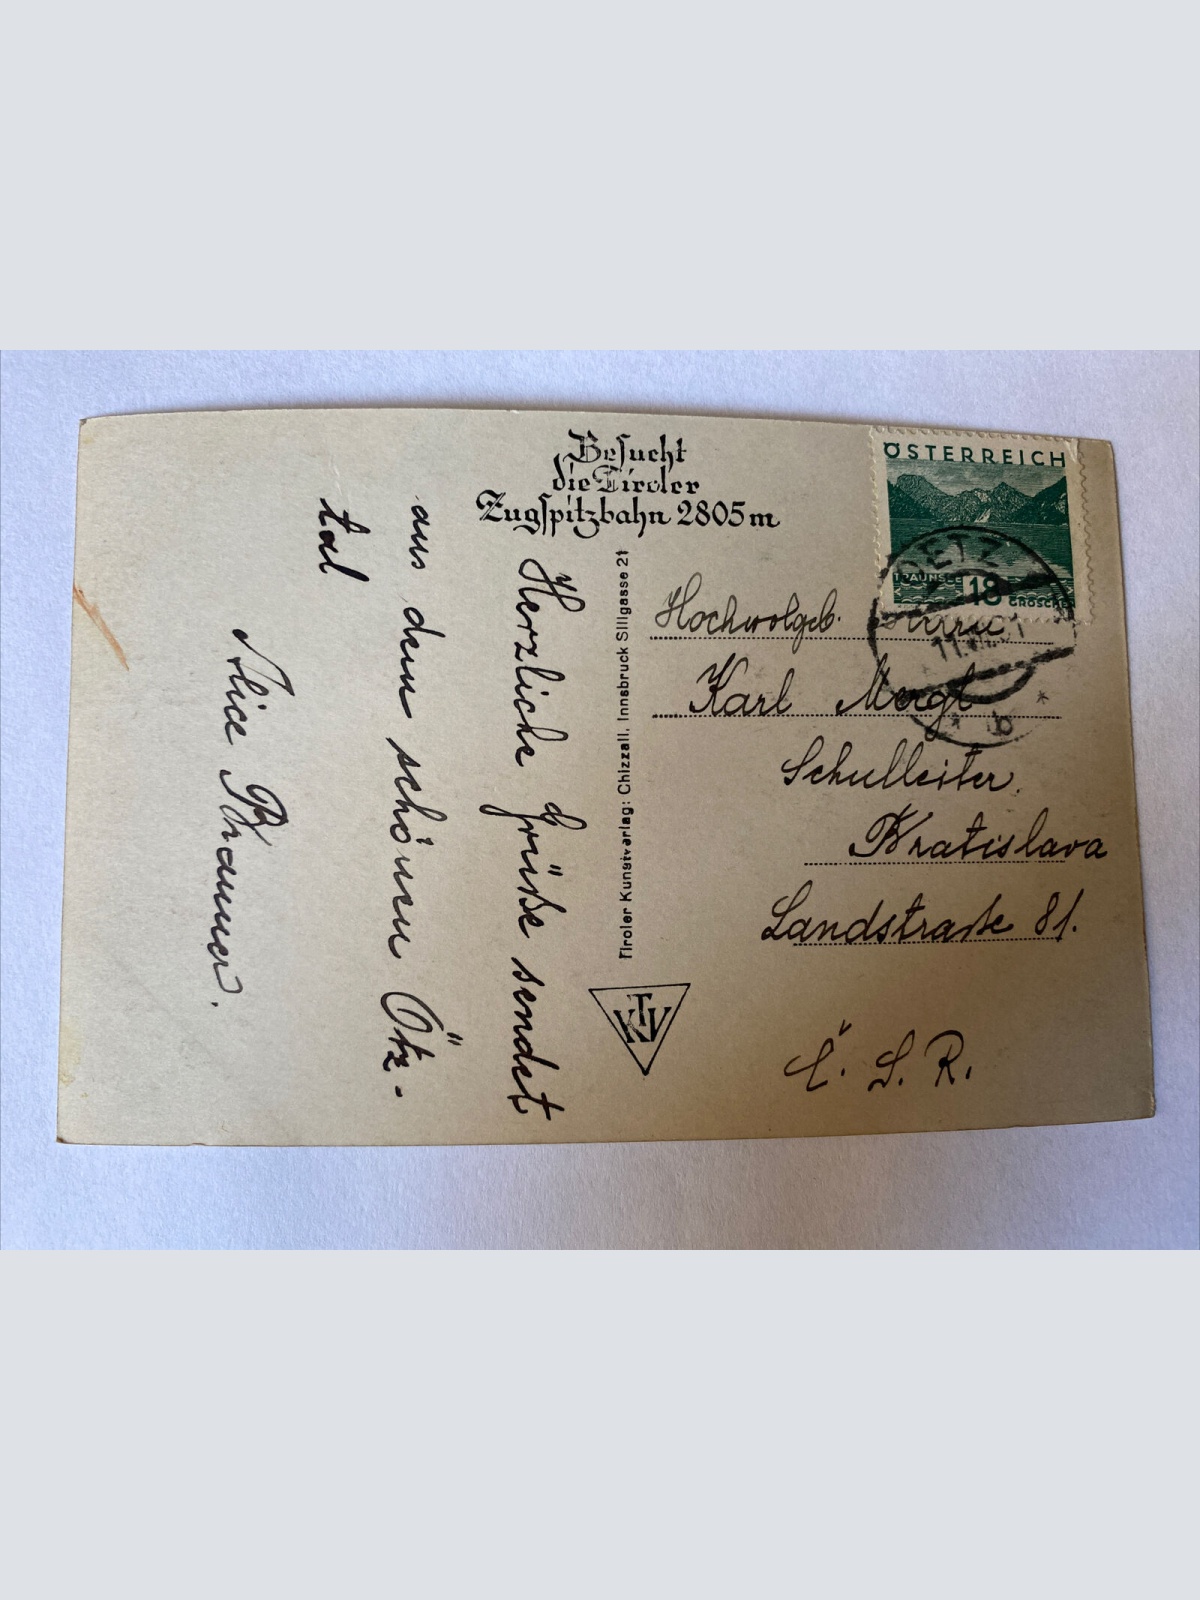 Besucht
die Tiroler
Zugspitzbahn 2805 m
ÖSTERREICH
TRAUNSEE
18 GROSCHEN
OETZ
b
Hochwolgeb. Herrn
Karl Mergl
Schulleiter.
Bratislava
Landstraße 81.
Č. S. R.
Tiroler Kunstverlag: Chizzali, Innsbruck Sillgasse 21
TKV
Herzliche Grüße sendet
aus dem schönen Ötz-
tal
Alice